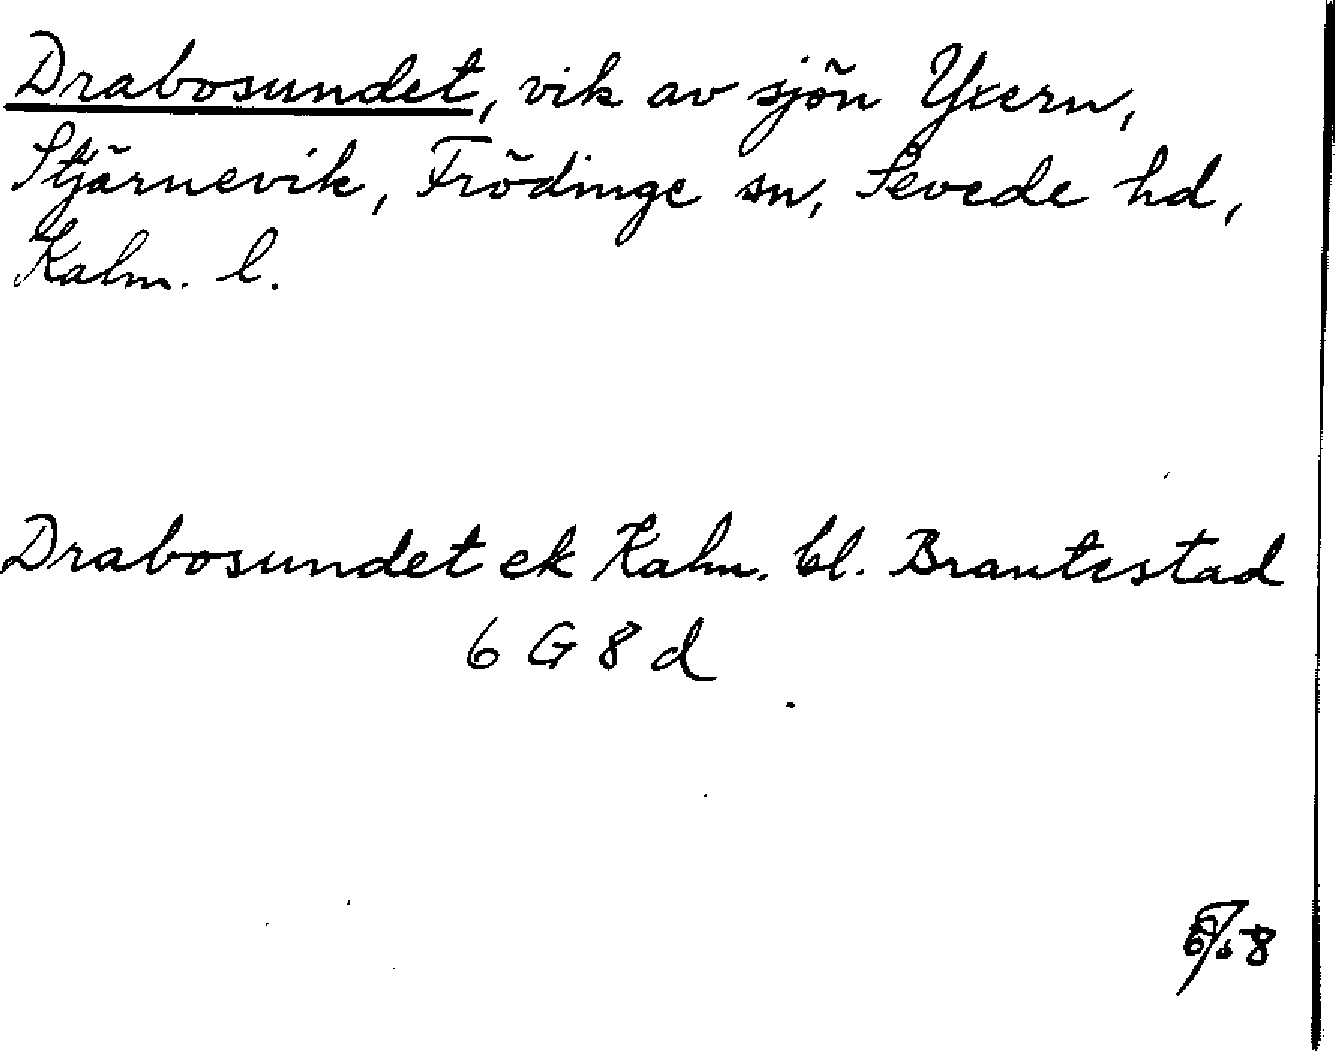 Drabosundet, vik av sjön Yxern,
Stjärnevik, Frödinge sn, Sevede hd,
Kalm. l.
Drabosundet ek Kalm. bl. Brantestad
6 G 8 d